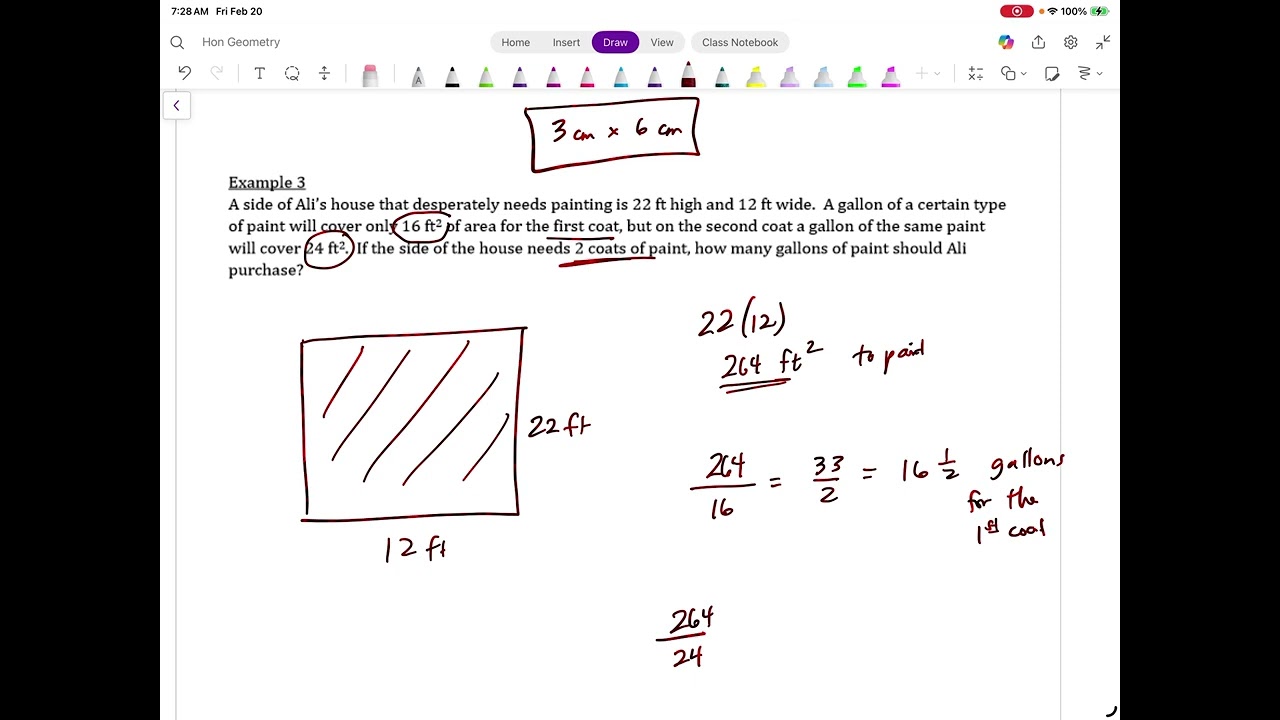 7:28 AM Fri Feb 20
100%
Hon Geometry
Home Insert Draw View Class Notebook
3 cm x 6 cm
Example 3
A side of Ali's house that desperately needs painting is 22 ft high and 12 ft wide. A gallon of a certain type
of paint will cover only 16 ft² of area for the first coat, but on the second coat a gallon of the same paint
will cover 24 ft². If the side of the house needs 2 coats of paint, how many gallons of paint should Ali
purchase?
22 (12)
264 ft² to paint
22 ft
12 ft
264/16 = 33/2 = 16 1/2 gallons
for the
1st coat
264/24